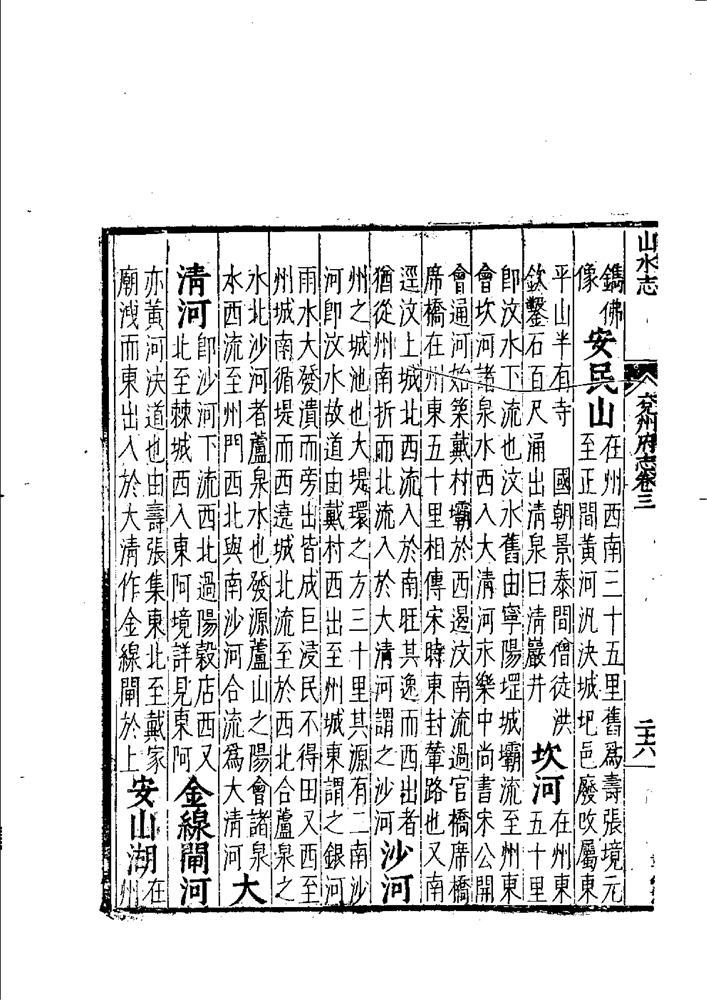 山水志
兗州府志卷三
二十六
鐫佛
像
安民山
在州西南三十五里舊爲壽張境元
至正間黃河汎決城圮邑廢攺屬東
平山半有寺　國朝景泰間僧徒洪
欽鑿石百尺涌出清泉曰清巖井
坎河
在州東
五十里
即汶水下流也汶水舊由寧陽堽城壩流至州東
會坎河諸泉水西入大清河永樂中尚書宋公開
會通河始築戴村壩於西遏汶南流過官橋席橋
席橋在州東五十里相傳宋時東封輦路也又南
逕汶上城北西流入於南旺其逸而西出者
猶從州南折而北流入於大清河謂之沙河
沙河
州之城池也大堤環之方三十里其源有二南沙
河即汶水故道由戴村西出至州城東謂之銀河
雨水大發潰而旁出皆成巨浸民不得田又西至
州城南循堤而西遶城北流至於西北合蘆泉之
水北沙河者蘆泉水也發源蘆山之陽會諸泉
水西流至州門西北與南沙河合流爲大清河
大
清河
即沙河下流西北過陽穀店西又
北至棘城西入東阿境詳見東阿
金線閘河
亦黃河決道也由壽張集東北至戴家
廟洩而東出入於大清作金線閘於上
安山湖
在
州